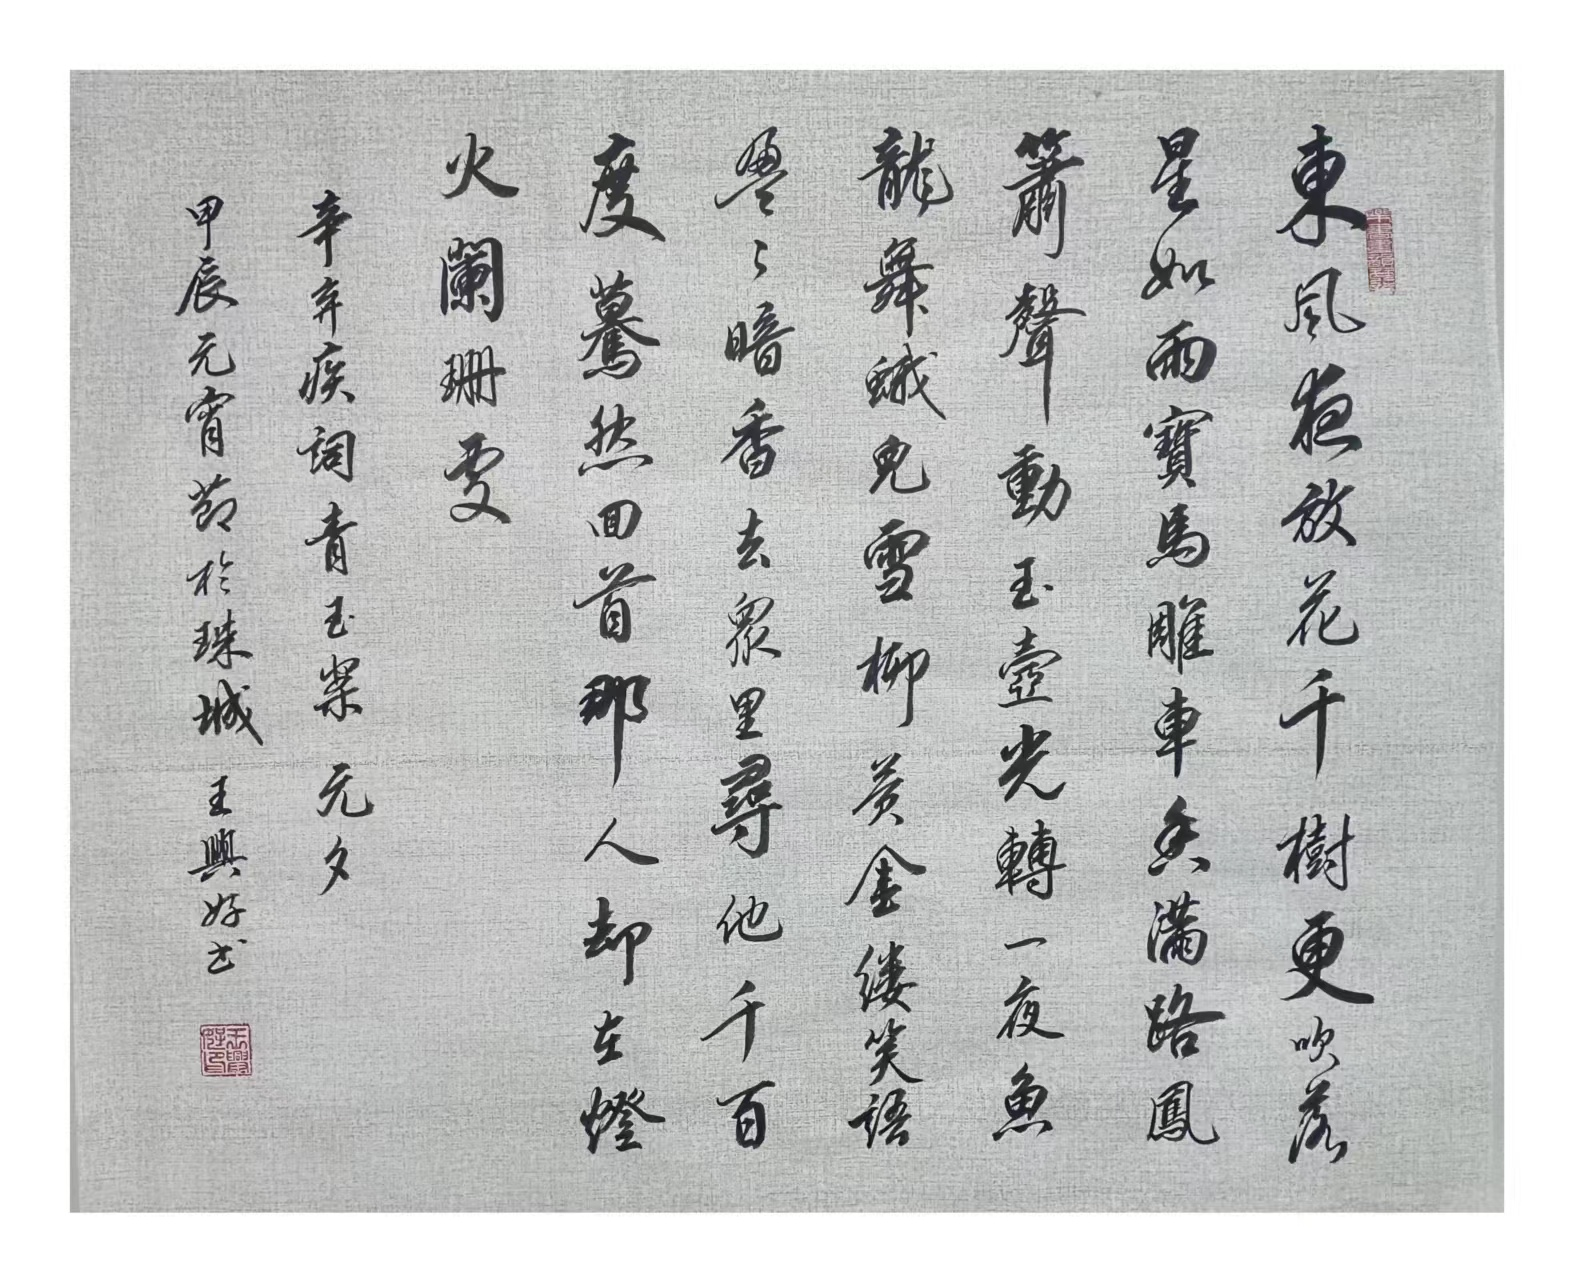 東風夜放花千樹更吹落
星如雨寶馬雕車香滿路鳳
簫聲動玉壺光轉一夜魚
龍舞蛾兒雪柳黃金縷笑語
盈〻暗香去眾里尋他千百
度驀然回首那人却在燈
火闌珊處
辛弃疾詞青玉案 元夕
甲辰元宵節於珠城 王興好书
王興好印